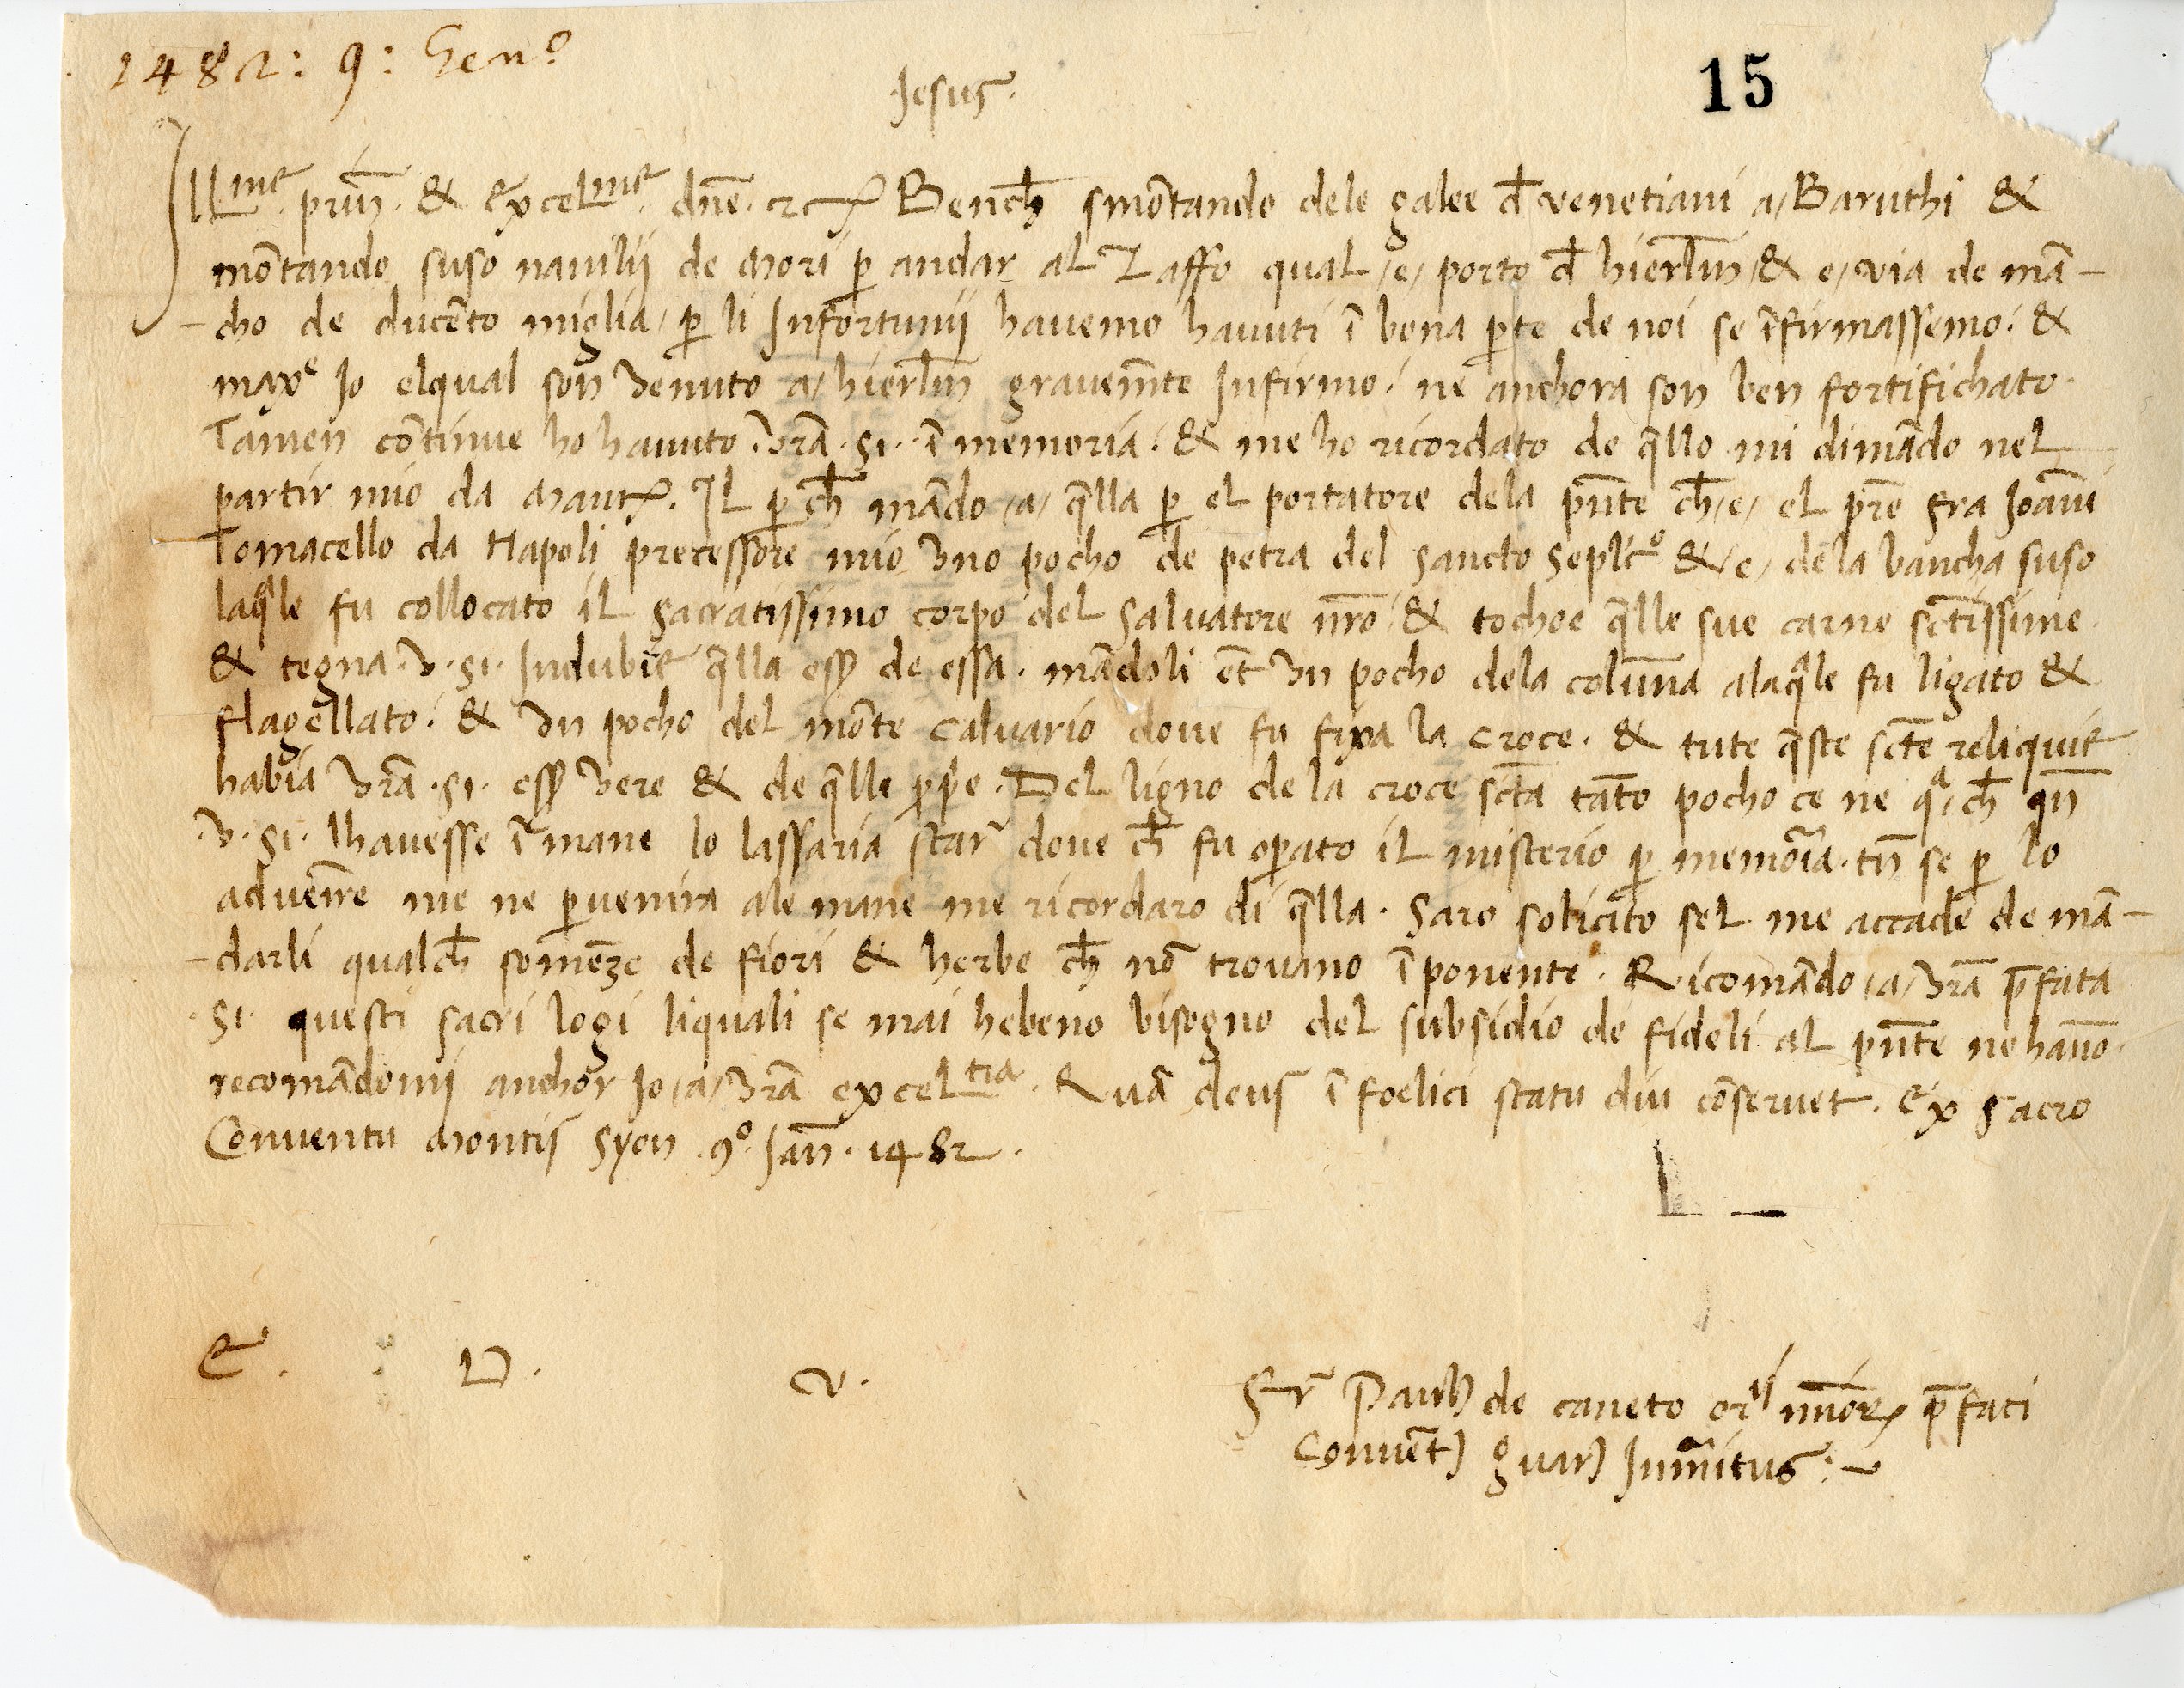 1482: 9: Genº
Jesus.
15
Illme. prīn. & Excelme. dn̄e. &c. Bench̄ smōtando dele galee d̄ venetiani a Baruthi &
mōtando suso navilij de mori p̄ andar al Zaffo qual e porto d̄ hierlm̄ & e via de mā-
-cho de ducēto miglia, p̄ li Infortunij havemo havuti ī bona p̄te de noi se īfirmassemo. &
maxe Io elqual son venuto a hierlm̄ gravem̄te Infirmo. ne anchora son ben fortifichato.
Tamen cōtinue ho havuto vrā. Sī. ī memoria. & me ho ricordato de q̄llo mi dimādo nel
partir mio da Mant. Il p̄ch̄ mādo a q̄lla p̄ el portatore dela pn̄te ch̄ e el prē fra Joāni
Tomacello da Napoli precessore mio vno pocho de petra del sancto seplcº & e dela bancha suso
laq̄le fu collocato il sacratissimo corpo del Salvatore nrō & tochoe q̄lle sue carne sctīssime.
& tegna. v. sī. Indubie q̄lla esser de essa. mādoli et̄ vn pocho dela colūna alaq̄le fu ligato &
flagellato. & vn pocho del mōte calvario dove fu fixa la croce. & tute q̄ste sctē reliquie
habia vrā. sī. esser vere & de q̄lle pp̄e. Del ligno de la croce sctā tāto pocho ce ne qa ch̄ qn̄
v. sī. lhavesse ī mane lo lassaria star dove ch̄ fu op̄ato il misterio p̄ memōia. tn̄ se p̄ lo
advenīre me ne p̄venira ale mane me ricordaro di q̄lla. Saro solicito sel me accade de mā-
-darli qualch̄ somēze de fiori & herbe ch̄ nō trovano ī ponente. Ricomādo a vrā p̄fata
sī. questi sacri logi liquali se mai hebeno bisogno del subsidio de fideli al pn̄te ne hāno.
recomādomij anchor Io a vrā exceltia. Quā deus ī foelici statu diu cōservet. Ex Sacro
Conventu Montis Syon 9º. Jan̄. 1482.
E. D. V.
Fr Paulus de caneto orīs minōr p̄fati
Convēt guar Immeritus.